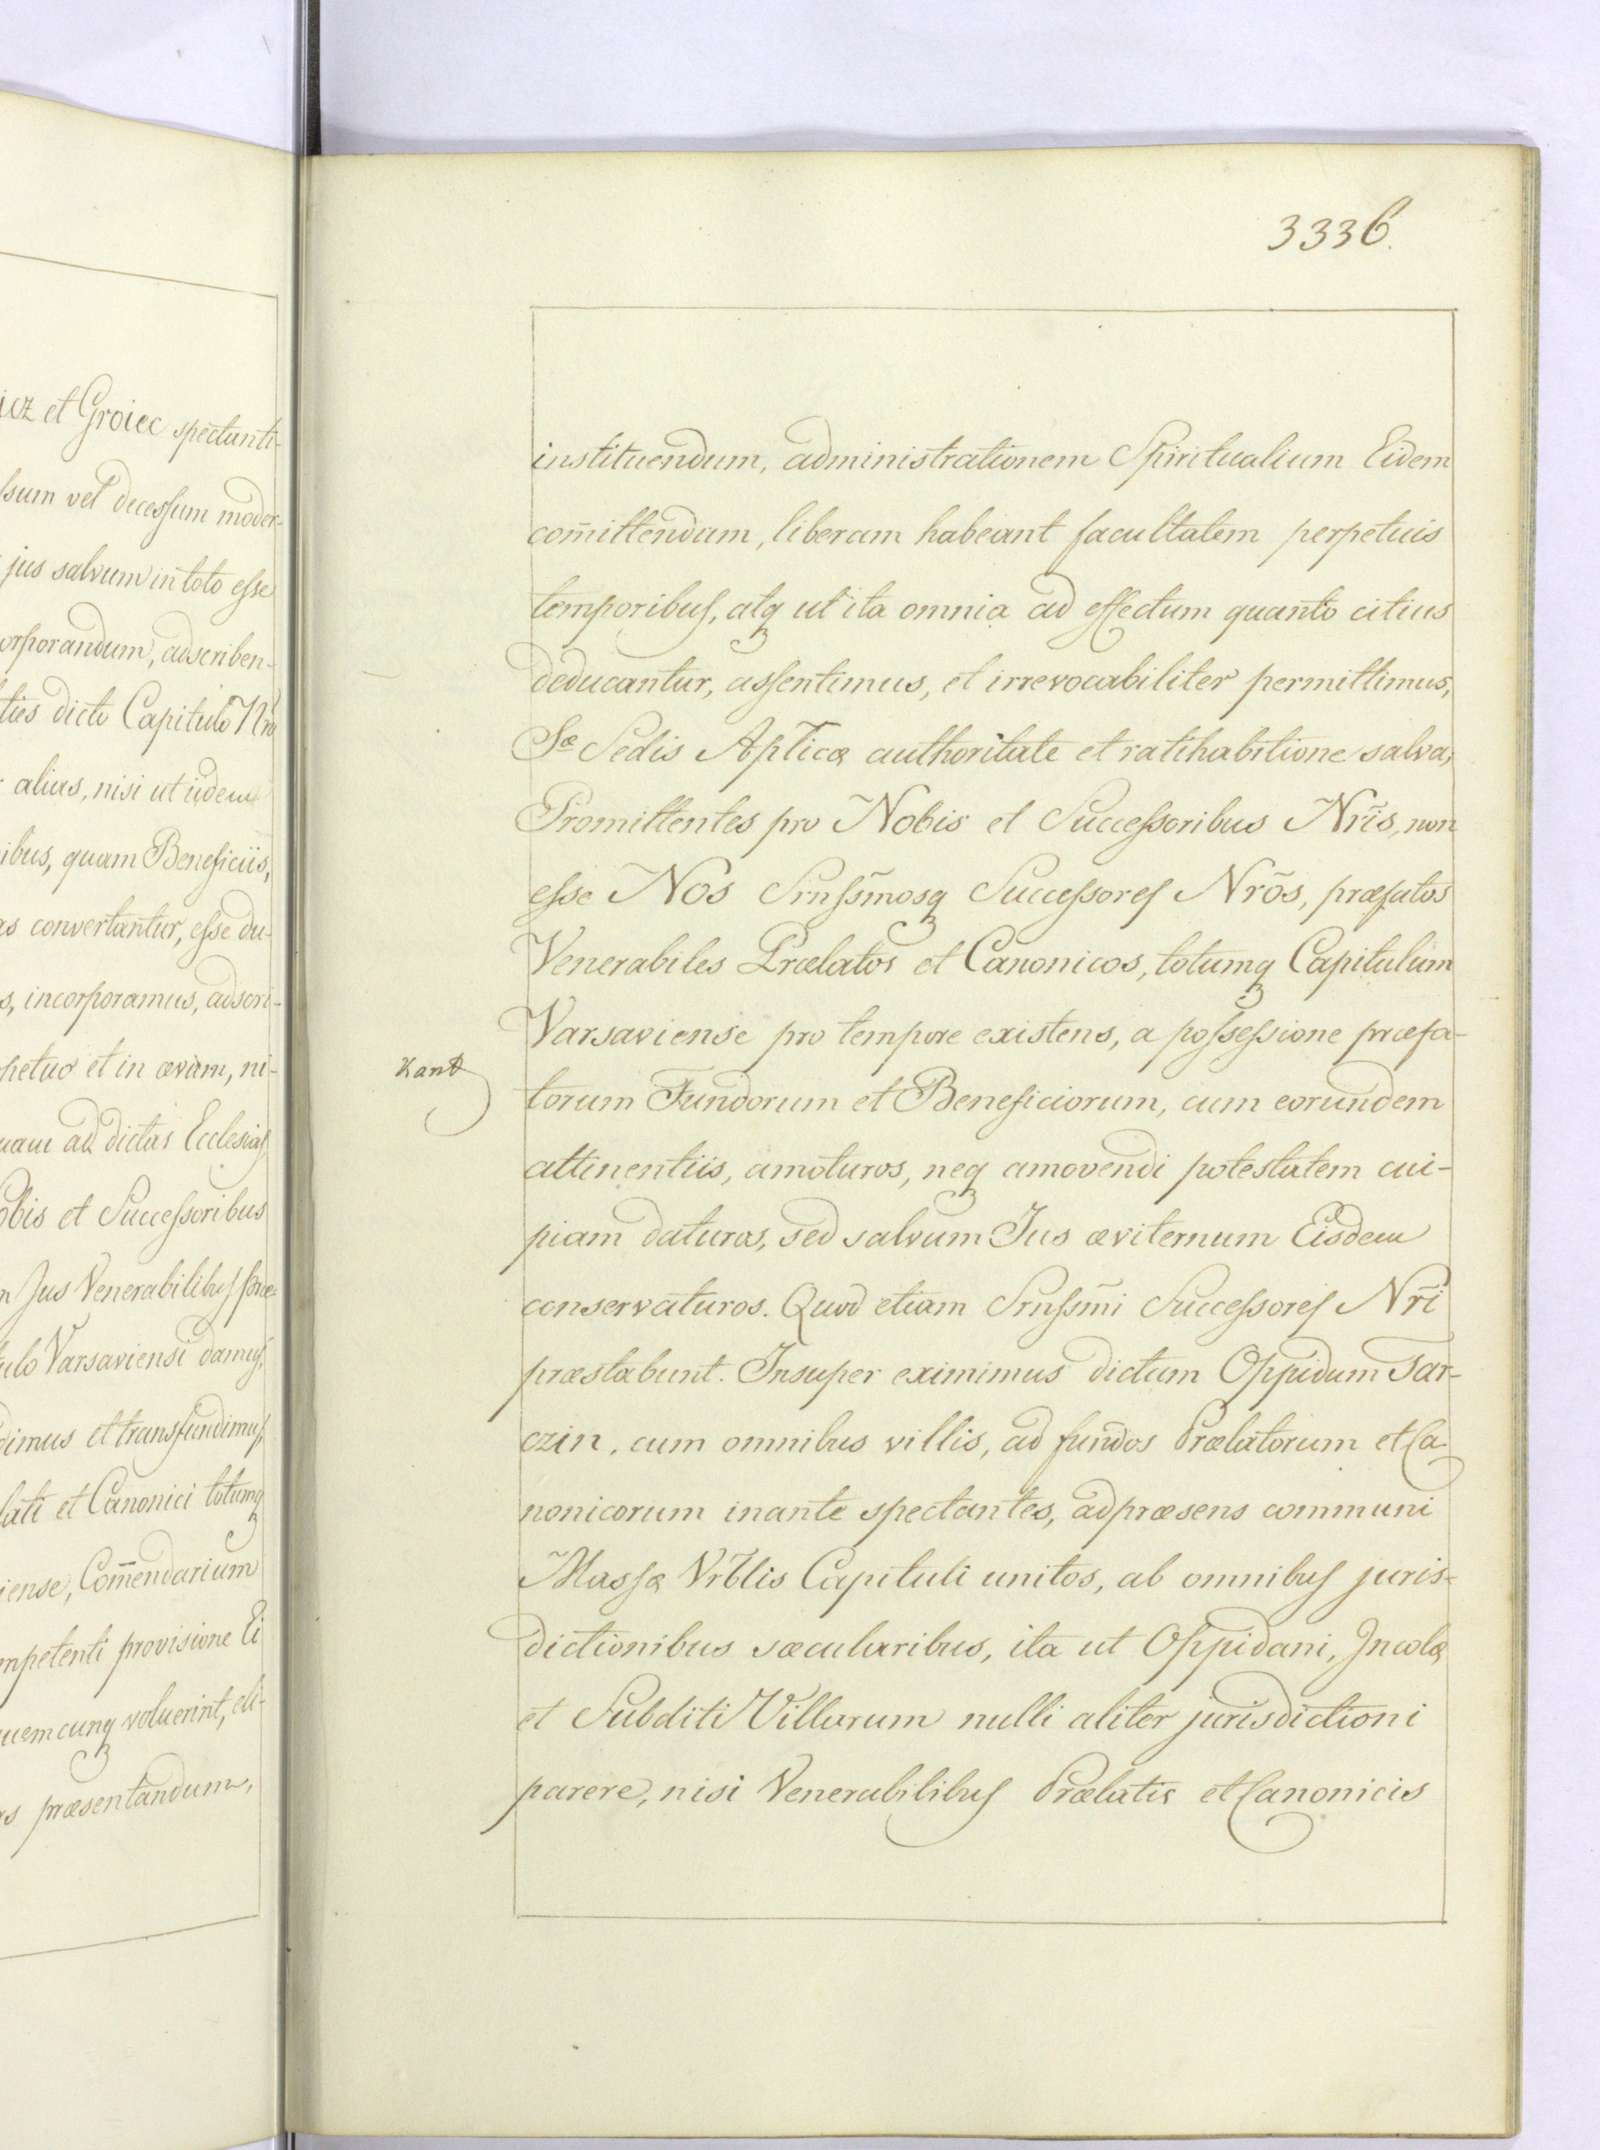 icz et Groiec spectanti-
ssum vel decessum moder-
jus salvum in toto esse
orporandum, adscriben-
ties dicto Capitulo Nrō
alias, nisi ut iidem
ibus, quam Beneficiis,
as convertantur, esse du-
s, incorporamus, adscri-
petuo et in ævum, ni-
quam ad dictas Ecclesias
obis et Successoribus
n Jus Venerabilibus Præ-
ulo Varsaviensi damus,
dimus et transfundimus,
lati et Canonici totumq
iense, Com̄endarium
mpetenti provisione Ei
uemcunq voluerint, eli-
rs præsentandum,
3336.
instituendum, administrationem Spiritualium Eidem
com̄ittendam, liberam habeant facultatem perpetuis
temporibus, atq ut ita omnia ad effectum quanto citius
deducantur, assentimus, et irrevocabiliter permittimus,
Sæ Sedis Aplicæ authoritate et ratihabitione salva;
Promittentes pro Nobis et Successoribus Nrīs, non
esse Nos Srnssm̄osq Successores Nrōs, præfatos
Venerabiles Prælatos et Canonicos, totumq Capitulum
Varsaviense pro tempore existens, a possessione præfa-
Kant
torum Fundorum et Beneficiorum, cum eorundem
attinentiis, amoturos, neq amovendi potestatem cui-
piam daturos, sed salvum Jus æviternum Eisdem
conservaturos. Quod etiam Srnssm̄i Successores Nrī
præstabunt. Insuper eximimus dictum Oppidum Tar-
czin, cum omnibus villis, ad fundos Prælatorum et Ca
nonicorum inante spectantes, ad præsens communi
Massæ Vrb̄lis Capituli unitos, ab omnibus juris-
dictionibus sæcularibus, ita ut Oppidani, Incolæ
et Subditi Villarum nulli aliter jurisdictioni
parere, nisi Venerabilibus Prælatis et Canonicis